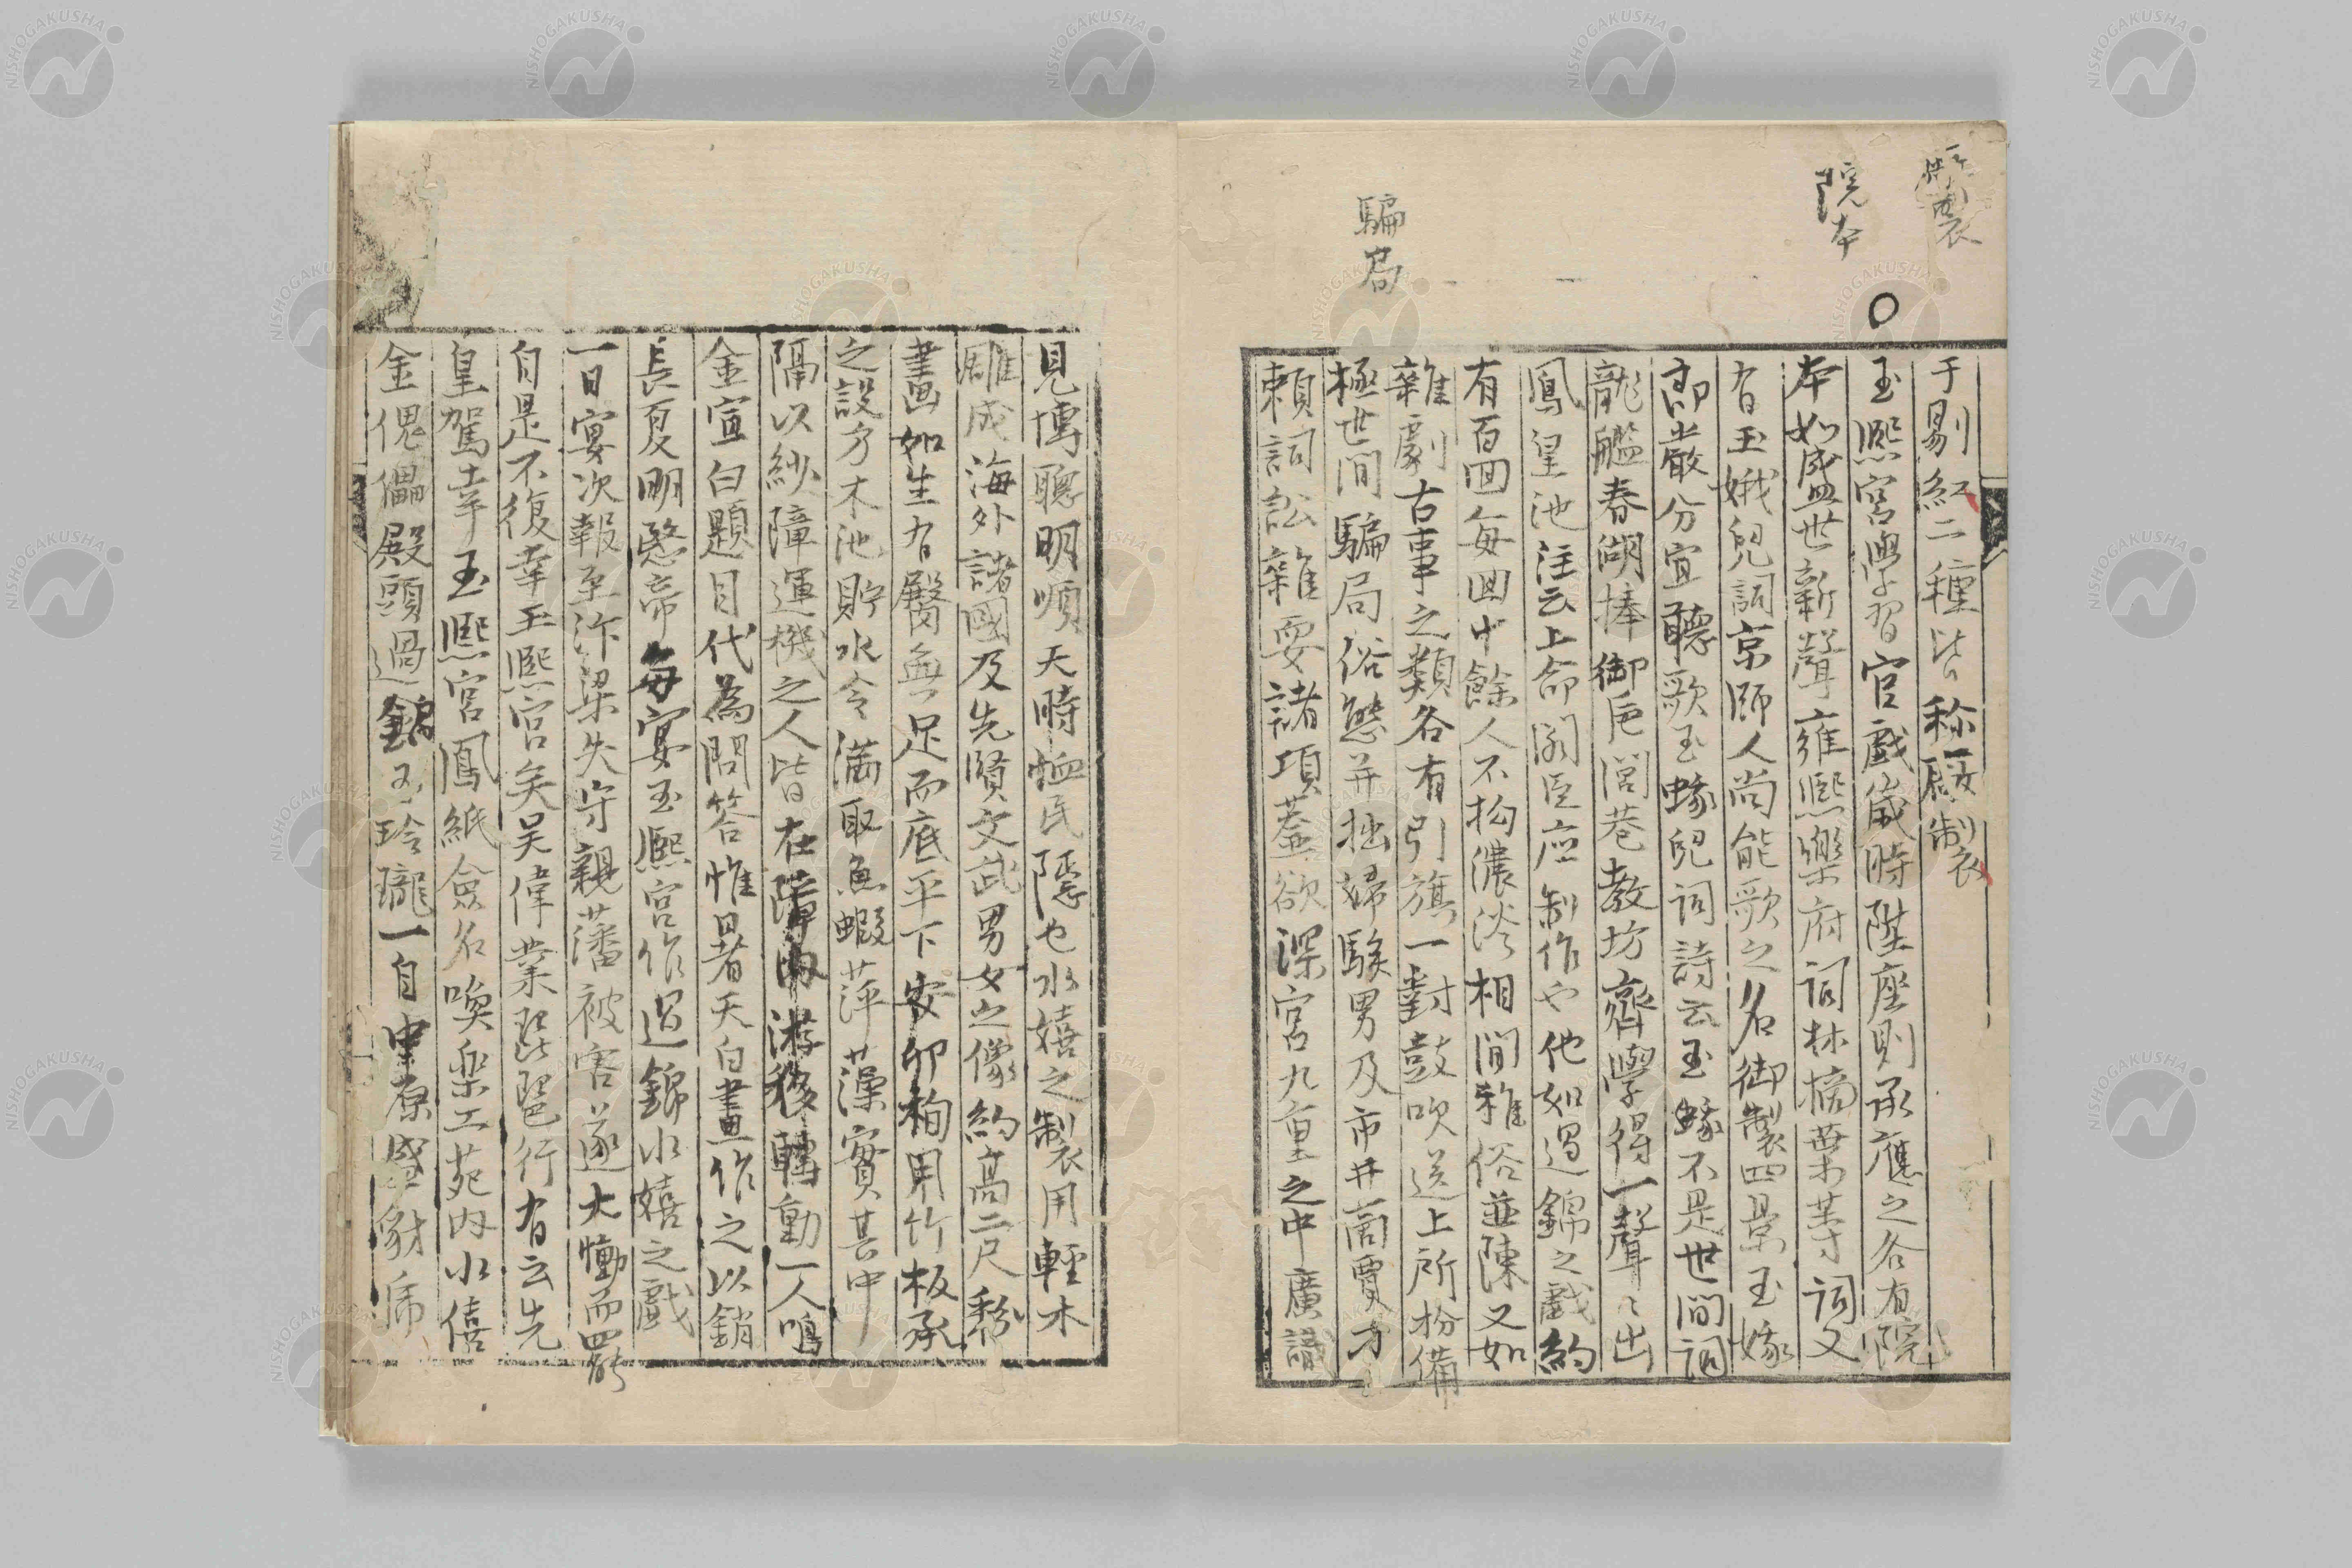 厰製
院本
騙局
于剔紅二種皆称厰製
○玉熈宮學習官戲歲時陞座則承應之各有院
本如盛世新聲雍熈樂府詞林摘葉等詞又
有玉娥兒詞京師人尚能歌之名御製四景玉娥
郎嚴分宜聽歌玉蛾兒詞詩云玉蛾不是世間詞
龍艦春湖捧御巵閭巷教坊齊學得一聲〻出
鳳皇池注云上命閣臣应制作也他如過錦之戲約
有百回每回十餘人不拘濃淡相間雜俗並陳又如
雜劇古事之類各有引旗一對鼓吹送上所扮備
極世間騙局俗態并拙婦騃男及市井商賈刁
賴詞訟雜耍諸項葢欲深宮九重之中廣識
見博聰明順天時恤民隱也水嬉之製用輕木
雕成海外諸國及先賢文武男女之像約高二尺
畫画如生有臀無足而底平下安卯榫用竹板承
之設方木池貯水令滿取魚蝦萍藻實其中
隔以紗障運機之人皆在障内游移轉動一人鳴
金宣白題目代為問答惟暑天白晝作之以銷
長夏明愍帝每宴玉熈宮作過錦水嬉之戲
一日宴次報至汴梁失守親藩被害遂大慟而罷
自是不復幸玉熈宮矣吴偉業琵琶行有云先
皇駕幸玉熈宮鳳紙僉名喚樂工苑内水僖
金傀儡殿頭過錦玉玲瓏一自中原盛豺虎
NISHOGAKUSHA